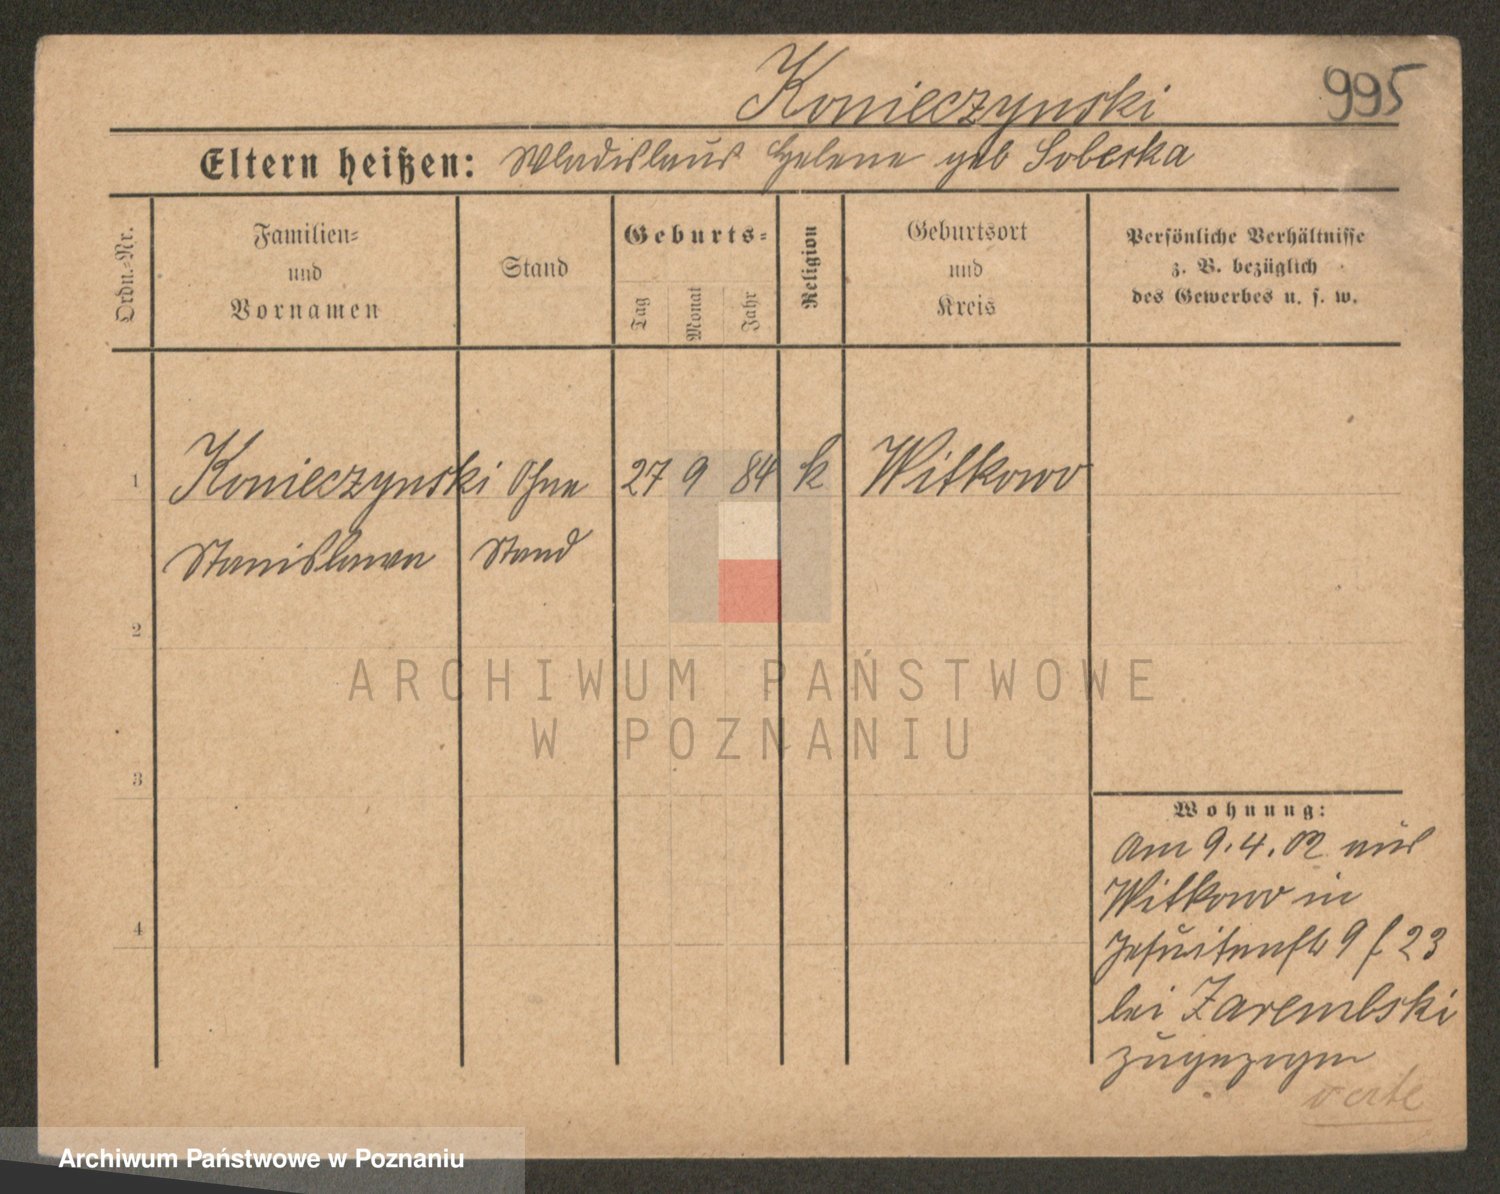 Konieczynski
995
Eltern heißen: Wladislaus Helene geb Soberka
Ordn.-Nr.
Familien-
und
Vornamen
Stand
Geburts-
Tag
Monat
Jahr
Religion
Geburtsort
und
Kreis
Persönliche Verhältnisse
z. B. bezüglich
des Gewerbes u. s. w.
1 Konieczynski Ohne 27 9 84 k Witkowo
Stanislawa Stand
2
3
4
Wohnung:
Am 9.4.02 aus
Witkowo in
Jesuitenstr 9 f 23
bei Zarembski
zugezogen
verte
ARCHIWUM PAŃSTWOWE
W POZNANIU
Archiwum Państwowe w Poznaniu